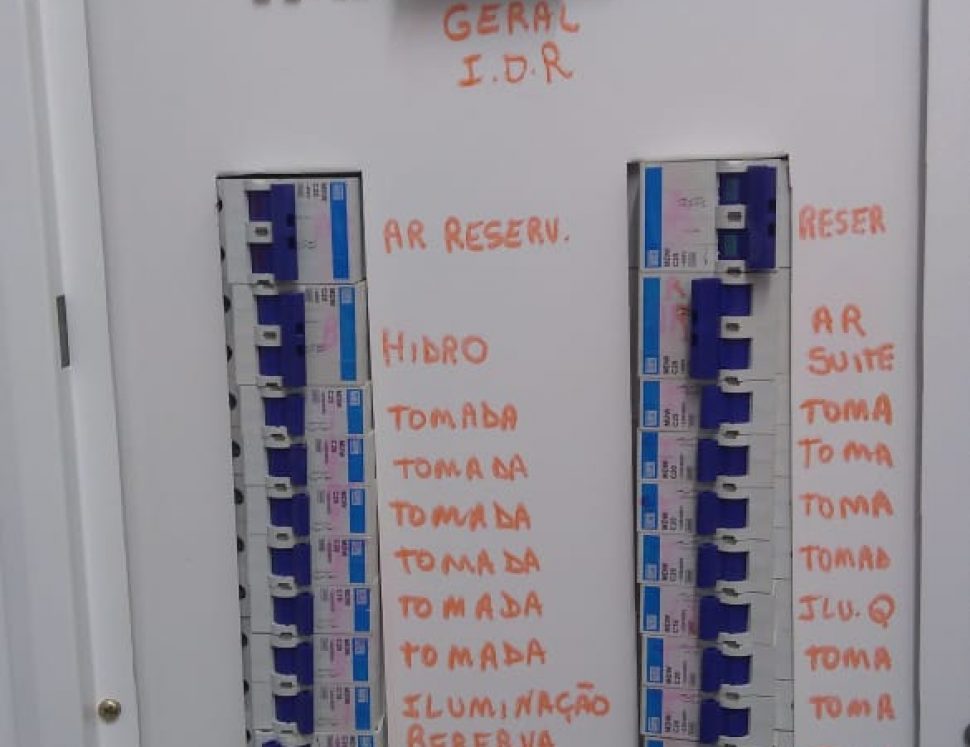 GERAL
I.D.R
AR RESERV.
HIDRO
TOMADA
TOMADA
TOMADA
TOMADA
TOMADA
TOMADA
ILUMINAÇÃO
RESERVA
RESER
AR
SUITE
TOMA
TOMA
TOMA
TOMAD
ILU.Q
TOMA
TOMA